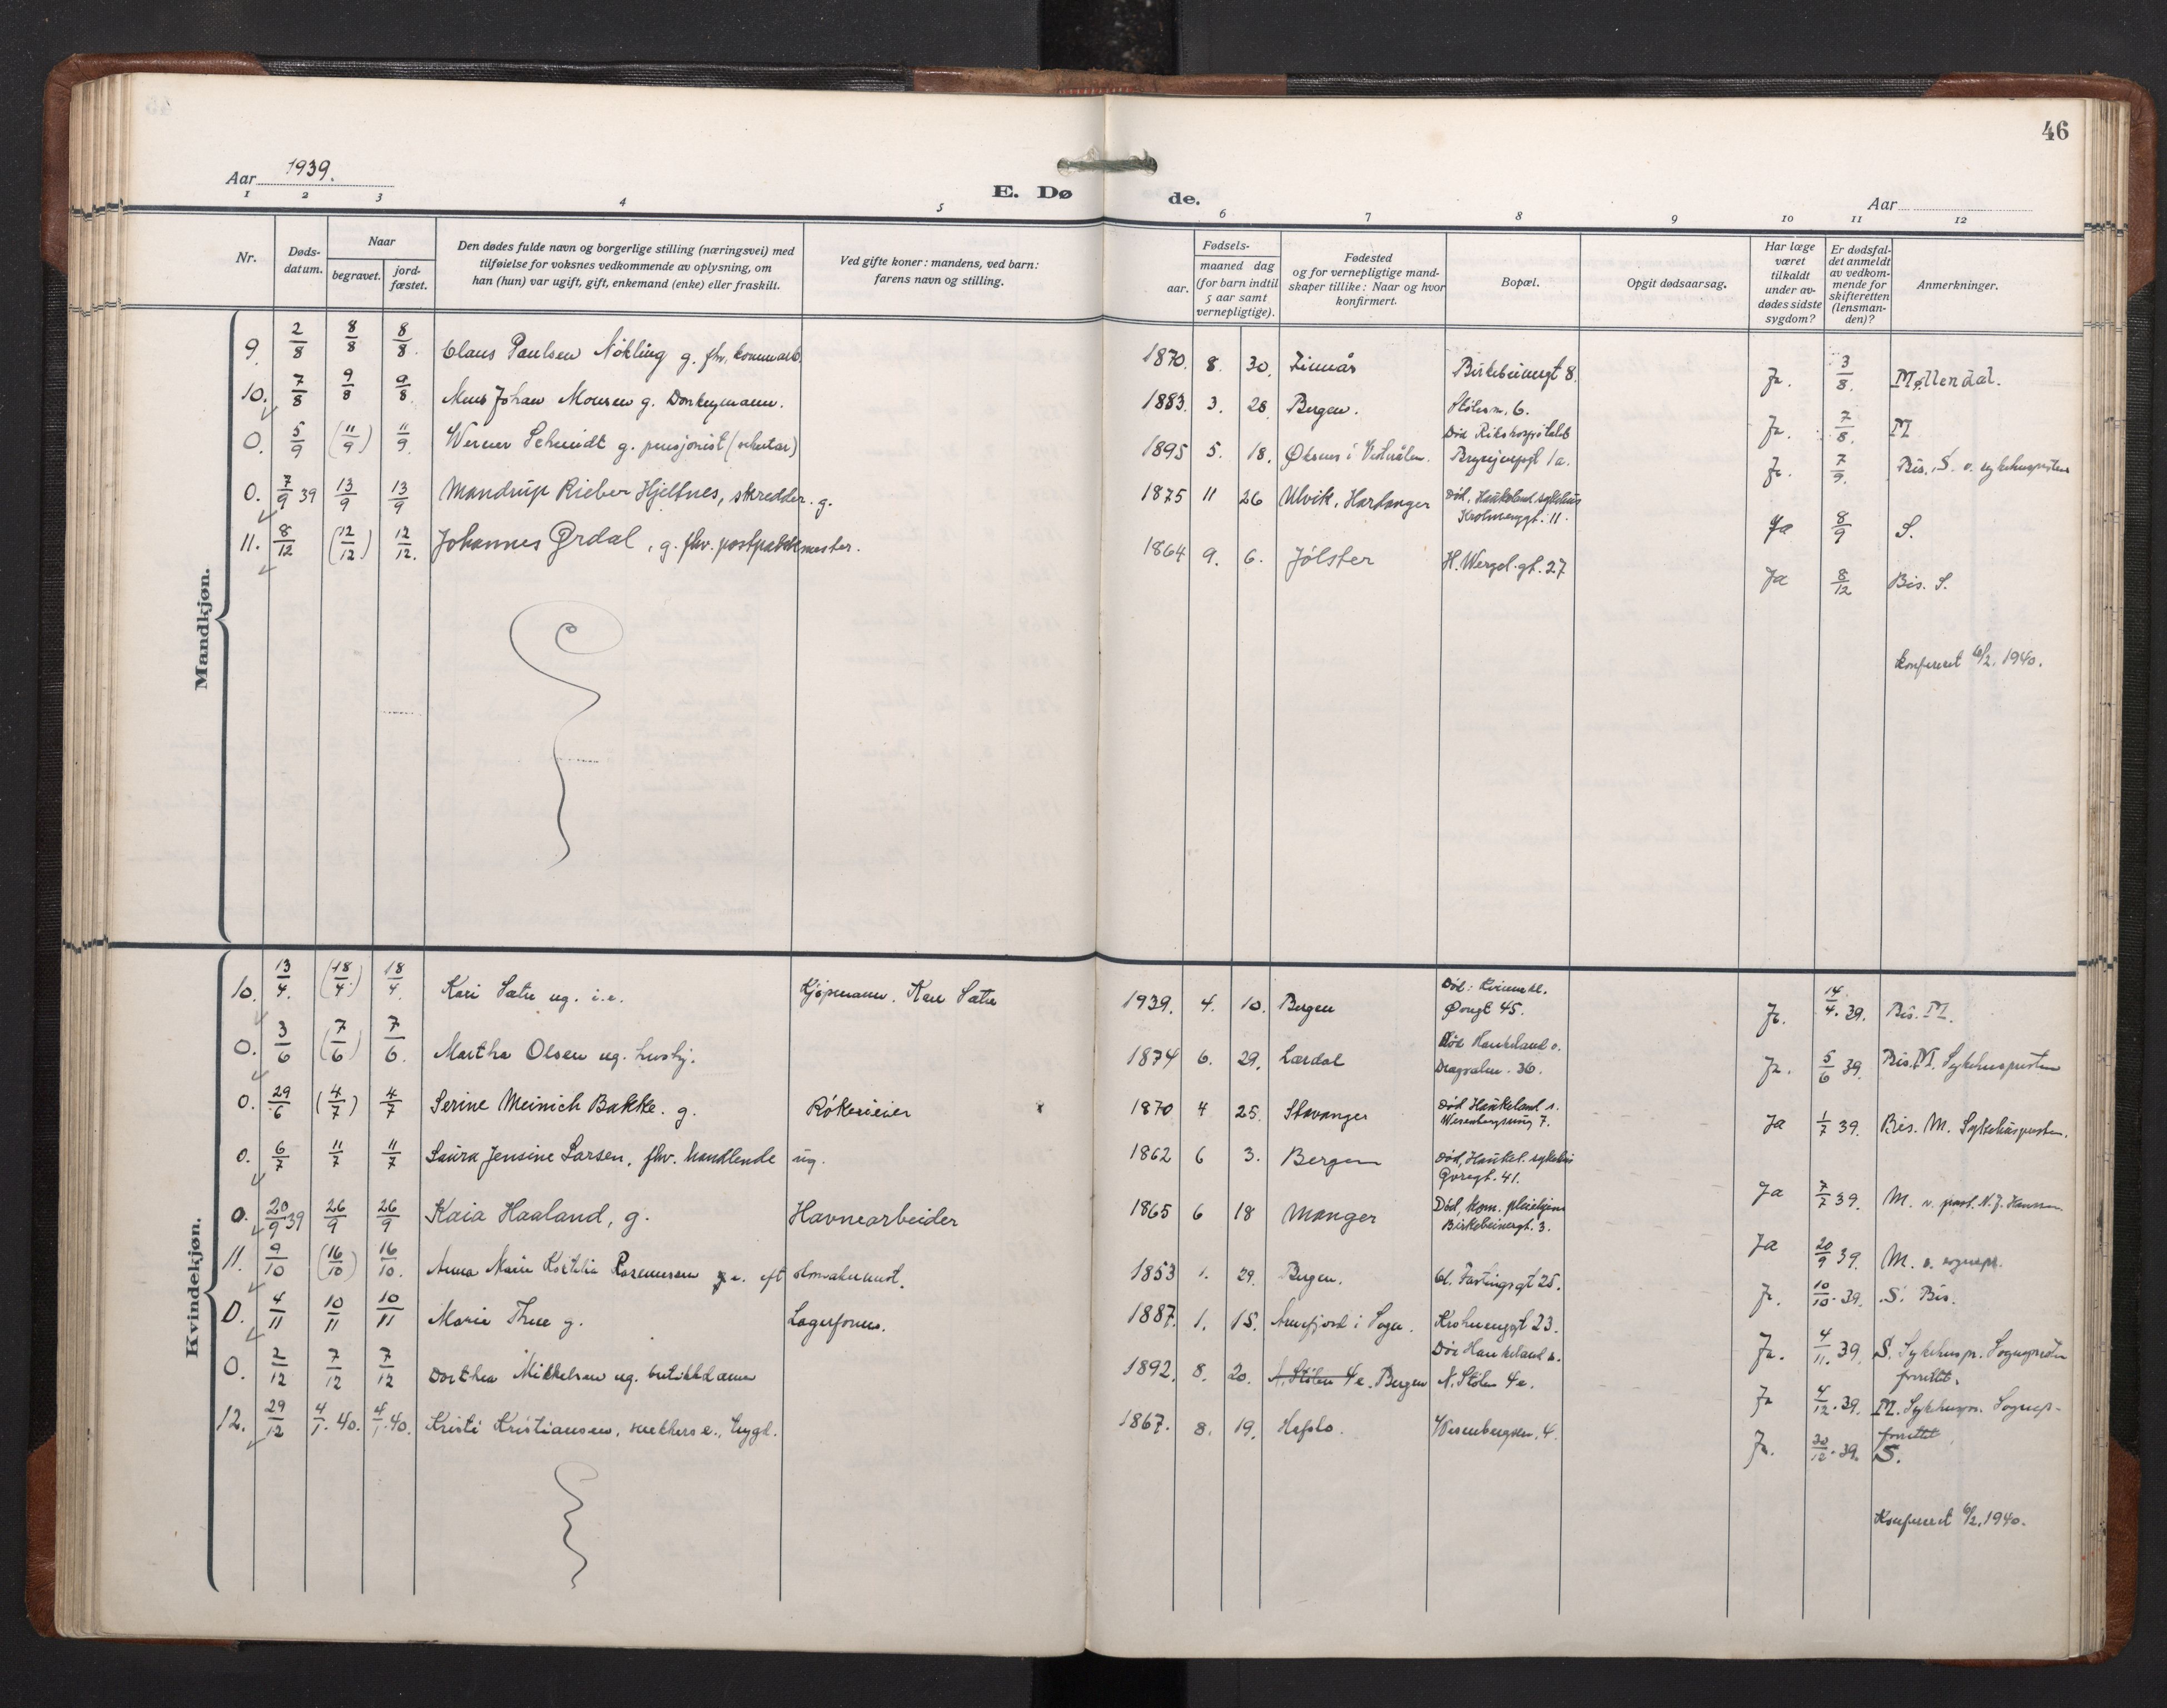 46
Aar 1939.
E. Dø de.
Aar
1 2 3 4 5 6 7 8 9 10 11 12
Nr.
Døds-datum.
Naar
begravet.
jord-fæstet.
Den dødes fulde navn og borgerlige stilling (næringsvei) med
tilføielse for voksnes vedkommende av oplysning, om
han (hun) var ugift, gift, enkemand (enke) eller fraskilt.
Ved gifte koner: mandens, ved barn:
farens navn og stilling.
Fødsels-
aar.
maaned dag
(for barn indtil
5 aar samt
vernepligtige).
Fødested
og for vernepligtige mand-
skaper tillike: Naar og hvor
konfirmert.
Bopæl.
Opgit dødsaarsag.
Har læge
været
tilkaldt
under av-
dødes sidste
sygdom?
Er dødsfal-
det anmeldt
av vedkom-
mende for
skifteretten
(lensman-
den)?
Anmerkninger.
Mandkjøn.
9. 2/8 8/8 8/8. Claus Paulsen Nökling g. fhv. kommarb. 1870. 8. 30. Birkebeinergt 8. Ja. 3/8. Møllendal.
10. 7/8 9/8 9/8. Mons Johan Monsen g. Donkeymann. 1883. 3. 28. Bergen. Stølesm. 6. Ja. 7/8. M
0. 5/9 (11/9) 11/9. Werner Schmidt g. pensjonist 1895 5. 18. Død Rikshospitalet 1a. Ja. 7/9. Bis. S. o. sykehuspresten
0. 7/9 39 13/9 13/9 Mandrup Rieber Hjeltnes, skredder. g. 1875 11 26 Ulvik, Hardanger Død, Haukeland sykehus Krohnenggt. 11. Ja 8/9 S.
11. 8/12 (12/12) 12/12. Johannes Ørdal, g. fhv. postpakkmester. 1864 9. 6. Jölster H. Wergel. gt. 27 Ja 8/12 Bis. S.
Konferert 6/2. 1940.
Kvindekjøn.
10. 13/4. (18/4) 18/4. Kari Sætre ug. i.e. Kjøpmann. Kåre Sætre 1939. 4. 10. Bergen Død: Kvinnekl. Øvregt 45. Ja. 14/4. 39. Bis. M.
0. 3/6 (7/6) 7/6. Martha Olsen ug. hushj. 1874 6. 29. Lærdal Død Haukeland s. 36. Ja. 5/6 39. Bis. M. Sykehuspresten
0. 29/6 (4/7) 4/7 Serine Meinich Bakke. g. Rökerieier 1870 4 25. Stavanger Død Haukeland s. Wesenbergsmug 7. Ja 1/7 39. Bis. M. Sykehuspresten.
0. 6/7 11/7 11/7 Laura Jensine Larsen, fhv. handlende ug. 1862 6 3. Bergen Død, Haukel. sykehus Øvregt. 41. Ja 7/7 39. M. v. past. N. J. Hansen
0. 20/9 39 26/9 26/9 Kaia Haaland, g. Havnearbeider 1865 6 18 Manger Død, kom. pleiehjem Birkebeinergt. 3. Ja 20/9 39. M. v. sognepr.
11. 9/10 (16/10) 16/10. Anna Marie Rasmussen e. eft 1853 1. 29. Bergen. Cl. Fastingsgt 25. Ja. 10/10. 39. S. Bis.
0. 4/11 10/11 10/11 Marie Thue g. Lagerform. 1887. 1. 15. Arnefjord i Sogn. Krohnenggt 23. Ja. 4/11. 39. S. Sykehuspr. Sognepresten forrettet.
0. 2/12 7/12 7/12 Dorthea Mikkelsen ug. butikkdame 1892. 8. 20. N. Stølen 4e. Bergen Død Haukeland s. N. Stølen 4e. Ja 4/12. 39. M. Sykehuspr. Sognepr. forrettet
12. 29/12 4/1. 40. 4/1. 40. Kristi Kristiansen, snekkers e., trygd. 1867. 8. 19. Hafslo. Wesenbergsm. 4. Ja. 30/12. 39. S.
Konferert 6/2. 1940.